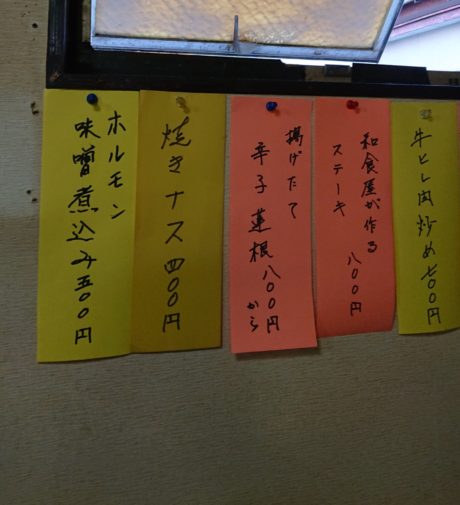 牛ヒレ肉炒め七〇〇円
和食屋が作る
ステーキ 八〇〇円
揚げたて
辛子蓮根八〇〇円から
焼きナス四〇〇円
ホルモン
味噌煮込み五〇〇円